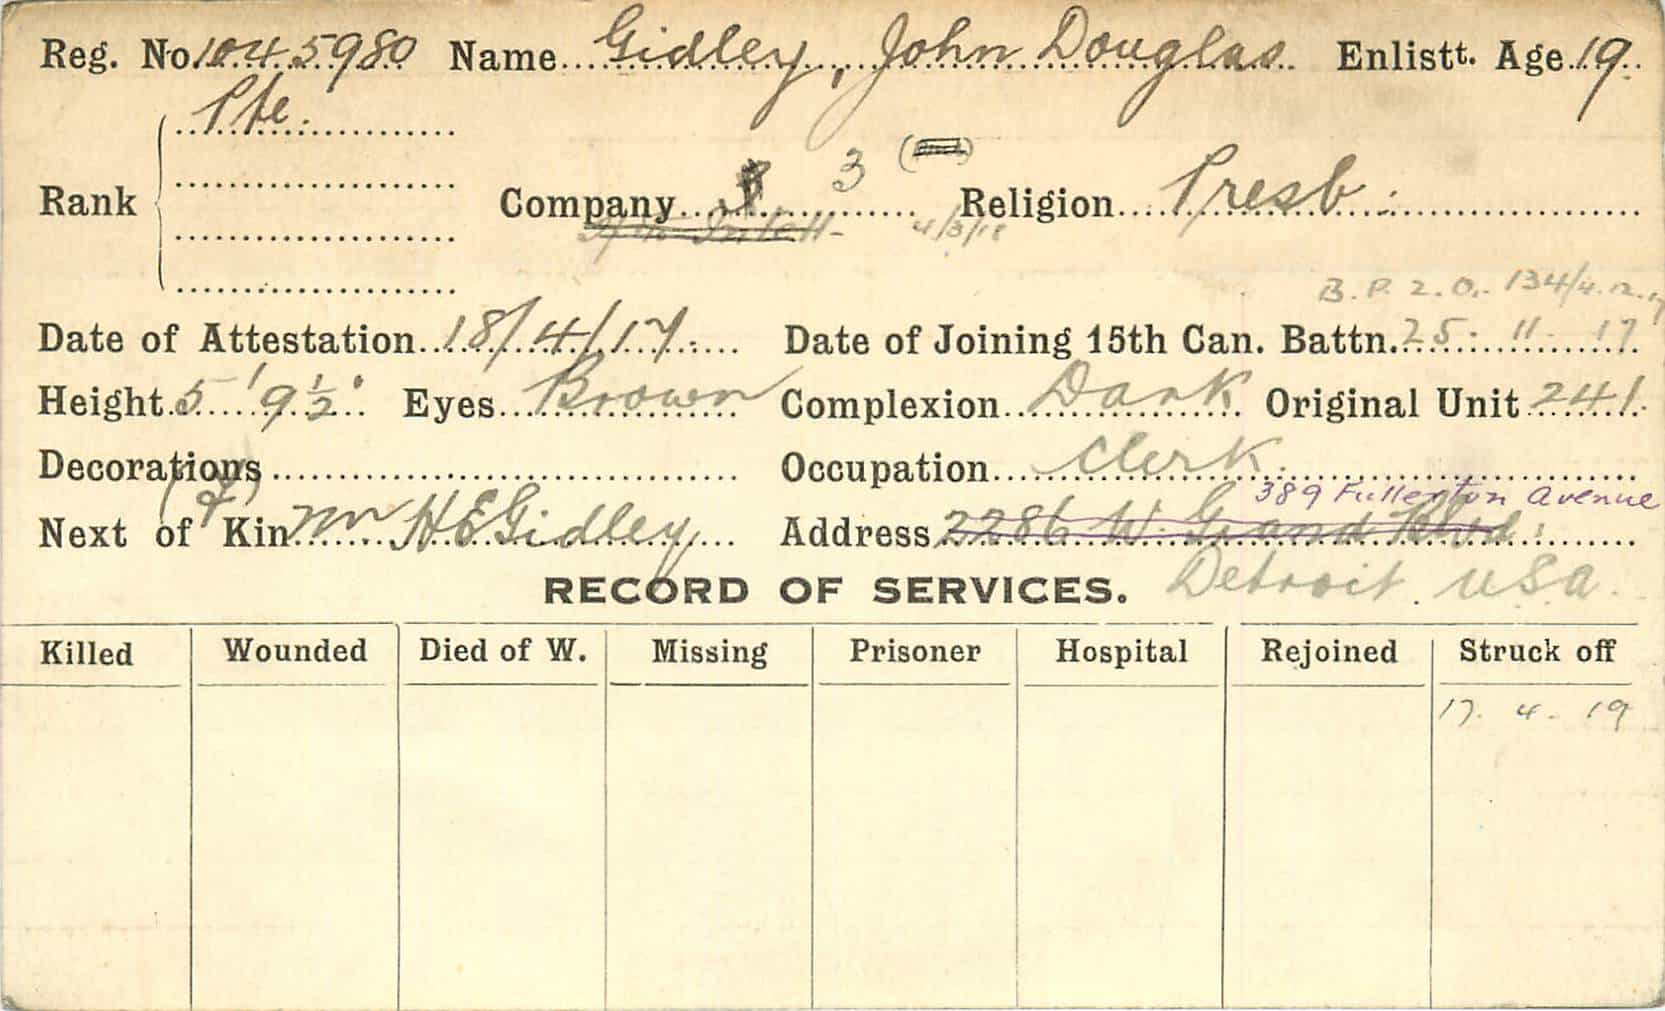 Reg. No. 1045980 Name Gidley, John Douglas Enlistt. Age 19
Pte.
Rank Company 3 Religion Presb.
4/3/18
B. P. 2. O. 134/4.12.17
Date of Attestation 18/4/17 Date of Joining 15th Can. Battn. 25 - 11 - 17
Height 5' 9½" Eyes Brown Complexion Dark Original Unit 241
Decorations Occupation Clerk
(F) 389 Fullerton Avenue
Next of Kin Mr H E Gidley Address 2286 W. Grand Blvd.
RECORD OF SERVICES. Detroit. USA.
Killed Wounded Died of W. Missing Prisoner Hospital Rejoined Struck off
17. 4. 19